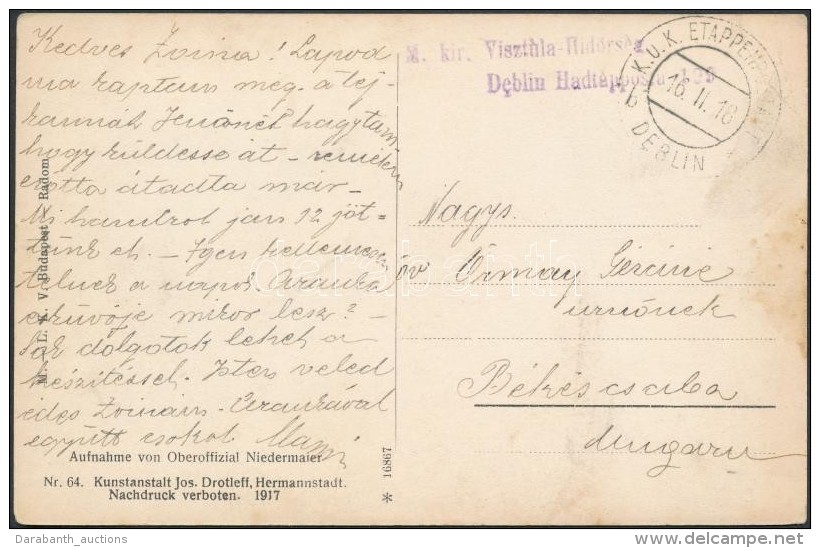 Kedves Zoina! Lapod
ma kaptam meg. a tej-
kannát Jenőnél hagytam
hogy küldesse át – remélem
azóta átadta már –
Mi hanulrol jan 12 jöt-
tünk el. – Igen kellemesen
telnek a napok Aranka
esküvője mikor lesz? –
Sok dolgotok lehet a
készítéssel. Isten veled
édes Zoinám. Arankával
együtt csókol Manci
M. kir. Visztula-Hidőrség
Dęblin Hadtápposta 199
K.U.K. ETAPPENPOSTAMT
b
16.II.18
DĘBLIN
Nagys.
özv Ormay Gézáné
urnőnek
Békéscsaba
Ungarn
M. – J. L. K. V. Budapest – Radom
Aufnahme von Oberoffizial Niedermaier
Nr. 64. Kunstanstalt Jos. Drotleff, Hermannstadt.
Nachdruck verboten. 1917
* 16867
darabanth
Darabanth_auctions
www.delcampe.net